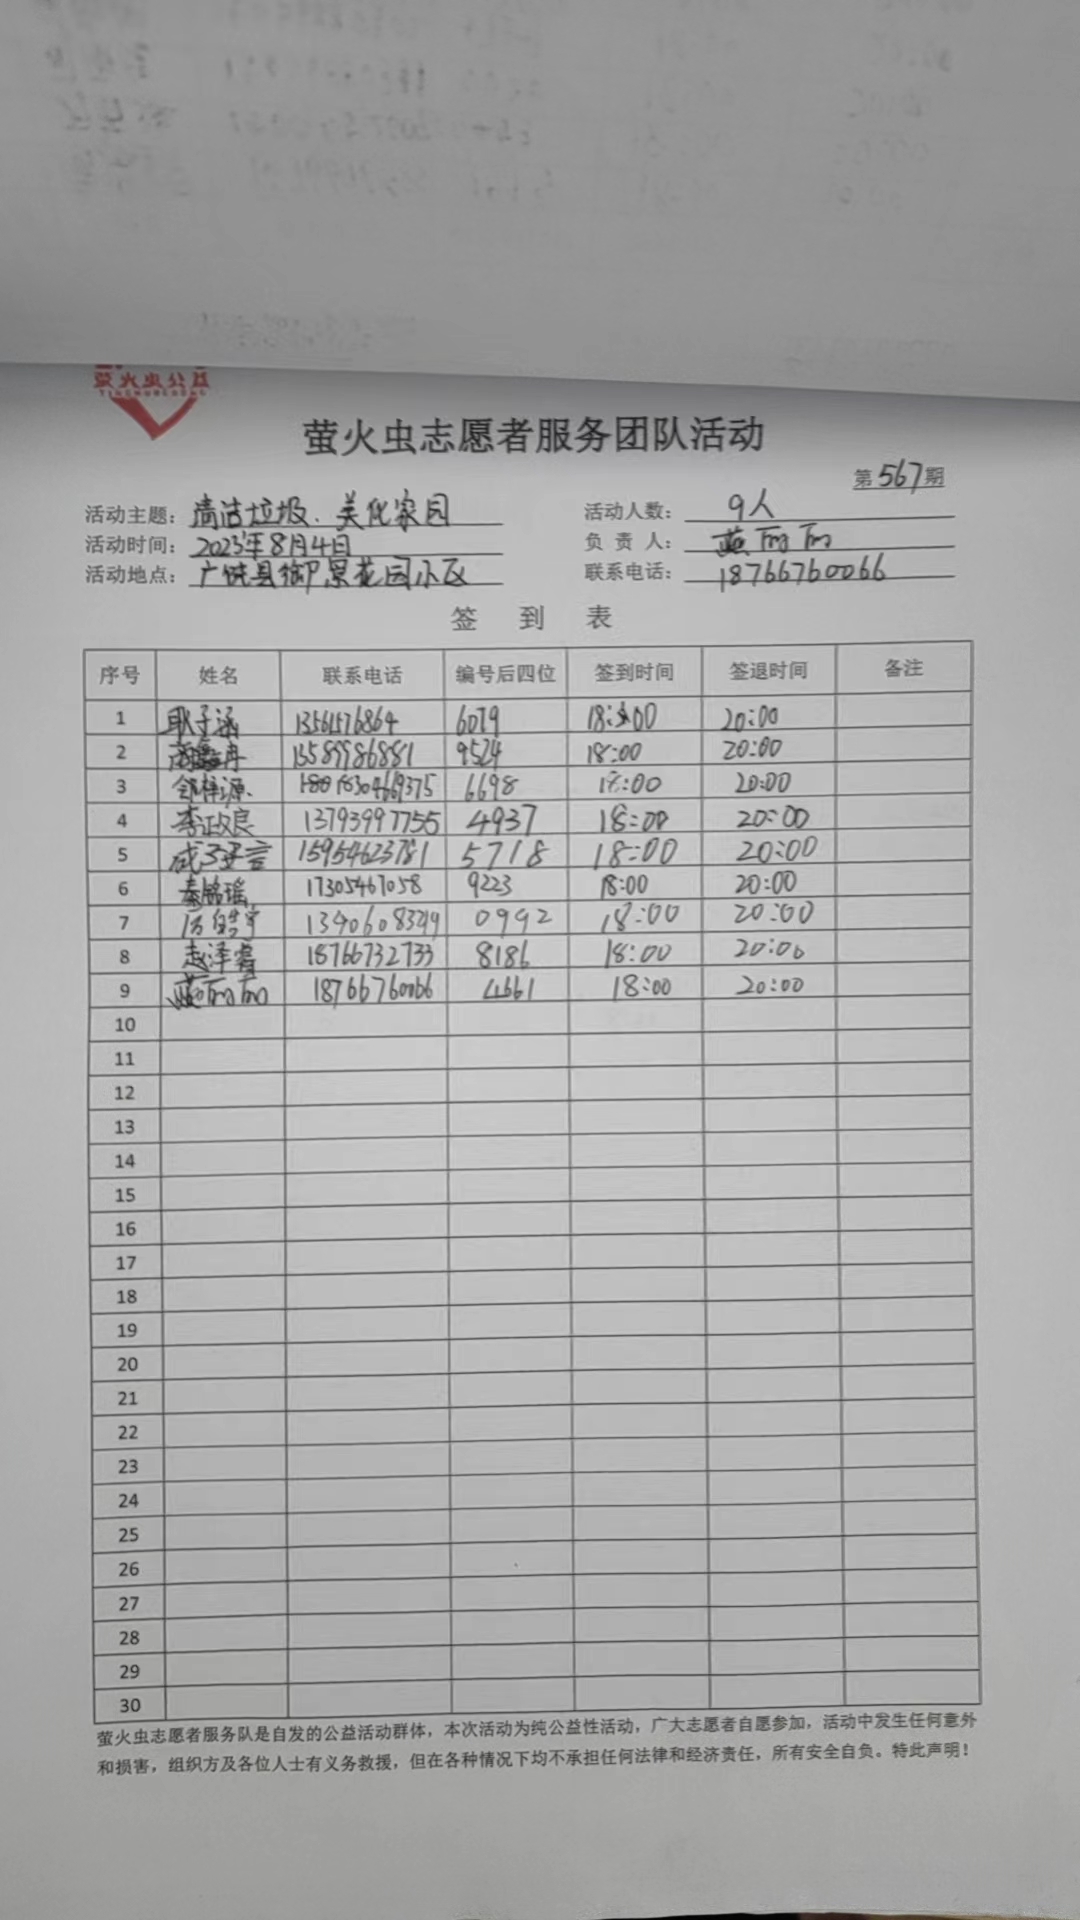 萤火虫公益
萤火虫志愿者服务团队活动
第567期
活动主题：清洁垃圾、美化家园 活动人数：9人
活动时间：2023年8月4日 负责人：燕丽丽
活动地点：广饶县御景花园小区 联系电话：18766760066
签到表
序号 姓名 联系电话 编号后四位 签到时间 签退时间 备注
1 耿子涵 13561576864 6079 18:00 20:00
2 15589986881 9524 18:00 20:00
3 6698 18:00 20:00
4 李政良 13793997755 4937 18:00 20:00
5 成子言 15954623781 5718 18:00 20:00
6 秦铭瑶 17305467058 9223 18:00 20:00
7 0992 18:00 20:00
8 赵泽睿 18766732733 8186 18:00 20:00
9 燕丽丽 18766760066 4661 18:00 20:00
10
11
12
13
14
15
16
17
18
19
20
21
22
23
24
25
26
27
28
29
30
萤火虫志愿者服务队是自发的公益活动群体，本次活动为纯公益性活动，广大志愿者自愿参加，活动中发生任何意外
和损害，组织方及各位人士有义务救援，但在各种情况下均不承担任何法律和经济责任，所有安全自负。特此声明！